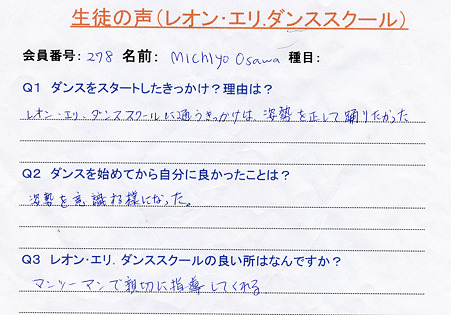 生徒の声（レオン・エリ.ダンススクール）
会員番号：278 名前： Michiyo Osawa 種目：
Q１ ダンスをスタートしたきっかけ？理由は？
レオン・エリ．ダンススクールに通うきっかけは 姿勢を正して踊りたかった
Q２ ダンスを始めてから自分に良かったことは？
姿勢を意識する様になった。
Q３ レオン・エリ．ダンススクールの良い所はなんですか？
マンツーマンで親切に指導してくれる